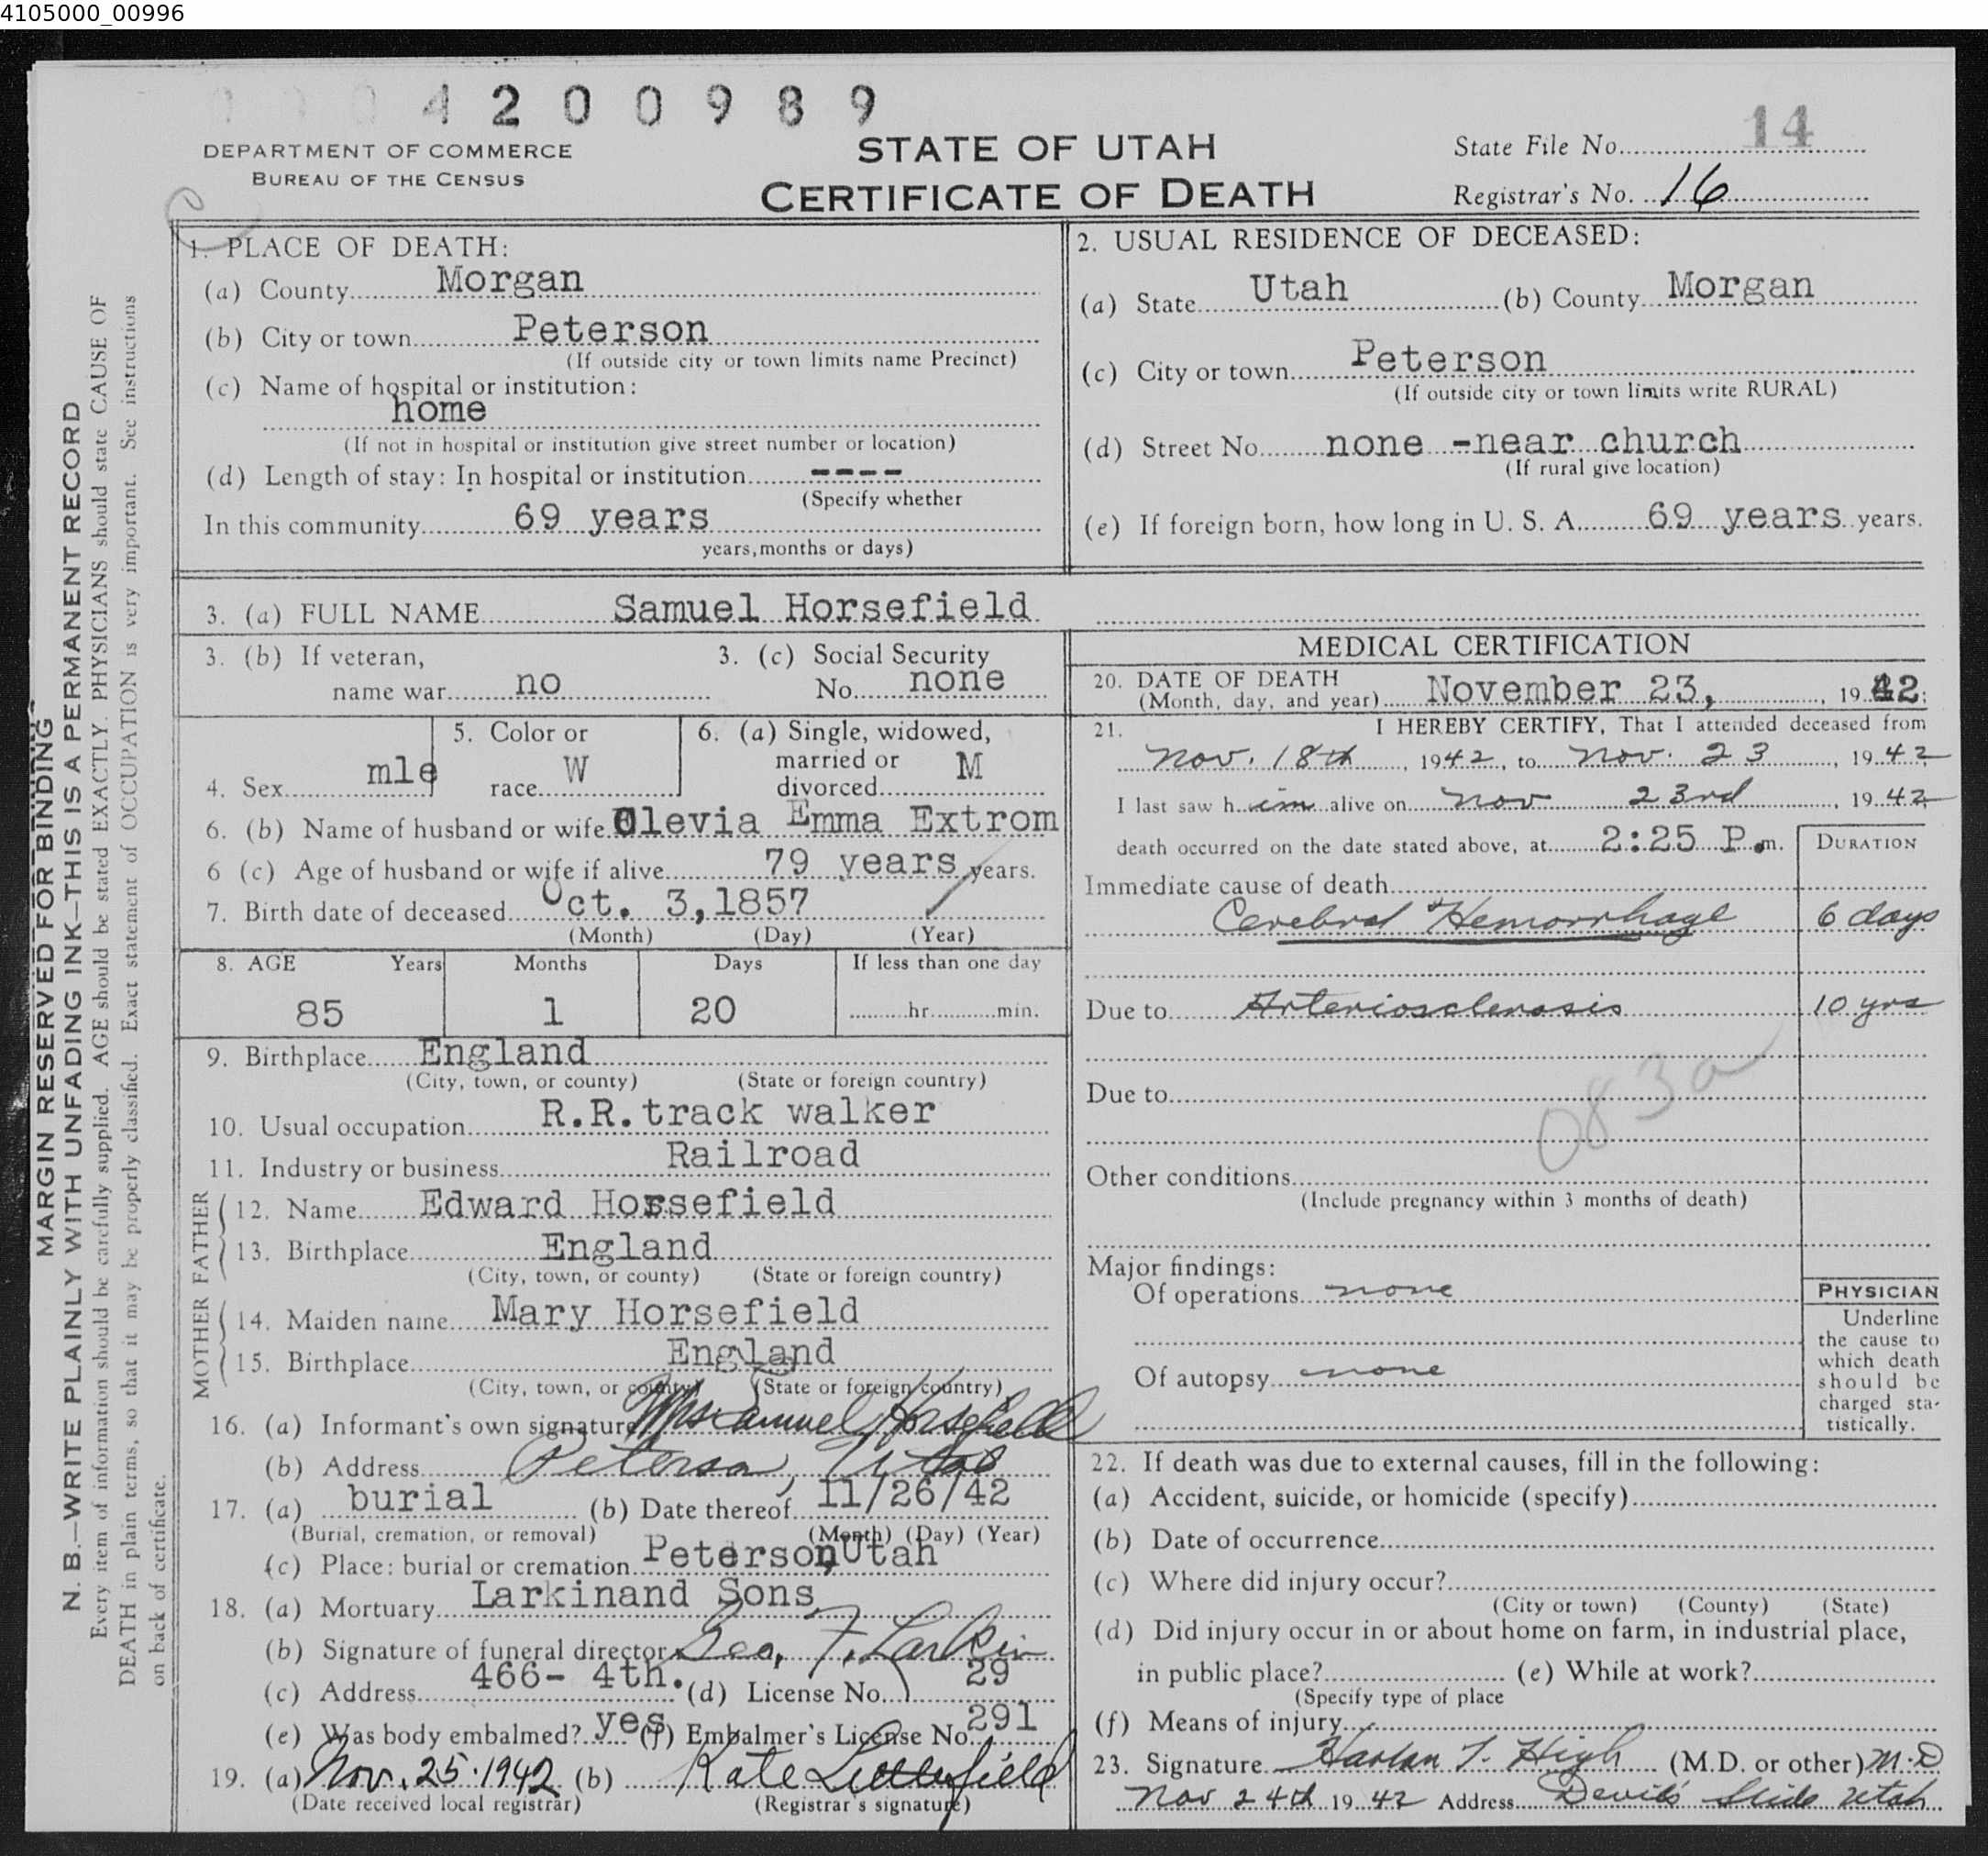 4105000_00996
0004200989
DEPARTMENT OF COMMERCE
BUREAU OF THE CENSUS
STATE OF UTAH
CERTIFICATE OF DEATH
State File No. 14
Registrar's No. 16
MARGIN RESERVED FOR BINDING
N. B.—WRITE PLAINLY WITH UNFADING INK—THIS IS A PERMANENT RECORD
Every item of information should be carefully supplied. AGE should be stated EXACTLY. PHYSICIANS should state CAUSE OF
DEATH in plain terms, so that it may be properly classified. Exact statement of OCCUPATION is very important. See instructions
on back of certificate.
1. PLACE OF DEATH:
(a) County Morgan
(b) City or town Peterson
(If outside city or town limits name Precinct)
(c) Name of hospital or institution:
home
(If not in hospital or institution give street number or location)
(d) Length of stay: In hospital or institution ----
(Specify whether
In this community 69 years
years, months or days)
2. USUAL RESIDENCE OF DECEASED:
(a) State Utah (b) County Morgan
(c) City or town Peterson
(If outside city or town limits write RURAL)
(d) Street No. none -near church
(If rural give location)
(e) If foreign born, how long in U. S. A. 69 years years.
3. (a) FULL NAME Samuel Horsefield
3. (b) If veteran,
name war no
3. (c) Social Security
No. none
4. Sex mle
5. Color or
race W
6. (a) Single, widowed,
married or
divorced M
6. (b) Name of husband or wife Olevia Emma Extrom
6 (c) Age of husband or wife if alive 79 years years.
7. Birth date of deceased Oct. 3,1857
(Month) (Day) (Year)
8. AGE Years Months Days If less than one day
85 1 20 hr. min.
9. Birthplace England
(City, town, or county) (State or foreign country)
10. Usual occupation R.R.track walker
11. Industry or business Railroad
FATHER
12. Name Edward Horsefield
13. Birthplace England
(City, town, or county) (State or foreign country)
MOTHER
14. Maiden name Mary Horsefield
15. Birthplace England
(City, town, or county) (State or foreign country)
16. (a) Informant's own signature Mrs Samuel Horsefield
(b) Address Peterson, Utah
17. (a) burial (b) Date thereof 11/26/42
(Burial, cremation, or removal) (Month) (Day) (Year)
(c) Place: burial or cremation Peterson,Utah
18. (a) Mortuary Larkinand Sons
(b) Signature of funeral director Geo. F. Larkin
(c) Address 466- 4th. (d) License No. 29
(e) Was body embalmed? yes (f) Embalmer's License No. 291
19. (a) Nov. 25. 1942 (b) Kate Littlefield
(Date received local registrar) (Registrar's signature)
MEDICAL CERTIFICATION
20. DATE OF DEATH
(Month, day, and year) November 23, , 1942;
21. I HEREBY CERTIFY, That I attended deceased from
Nov. 18th, 1942, to Nov. 23, 1942
I last saw him alive on Nov 23rd, 1942
death occurred on the date stated above, at 2:25 P.m.
DURATION
Immediate cause of death
Cerebral Hemorrhage 6 days
Due to Arteriosclerosis 10 yrs
Due to
083a
Other conditions
(Include pregnancy within 3 months of death)
Major findings:
Of operations none
Of autopsy none
PHYSICIAN
Underline
the cause to
which death
should be
charged sta-
tistically.
22. If death was due to external causes, fill in the following:
(a) Accident, suicide, or homicide (specify)
(b) Date of occurrence
(c) Where did injury occur?
(City or town) (County) (State)
(d) Did injury occur in or about home on farm, in industrial place,
in public place? (e) While at work?
(Specify type of place
(f) Means of injury
23. Signature Harlan T. High (M.D. or other) M.D
Nov 24th 1942 Address Devil's Slide Utah